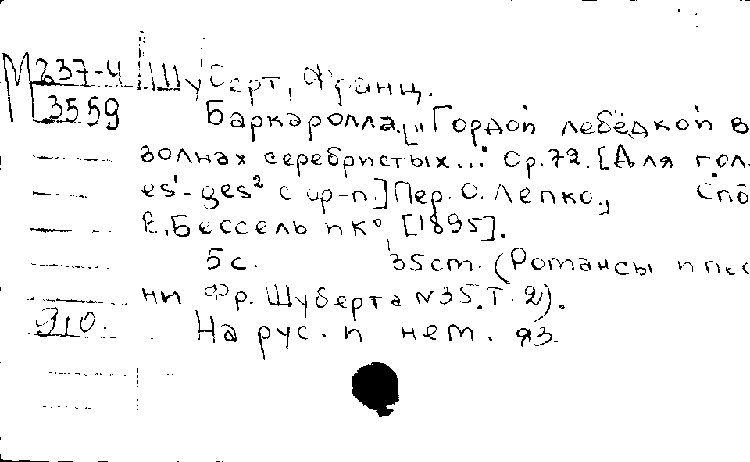 М 237-4 Шуберт, Франц.
3559 Баркаролла, „Гордой лебёдкой в
волнах серебристых..." Ор.72. [Для гол.
es¹-ges² с ф-п.] Пер. О. Лепко, Спб
В. Бессель и К° [1895].
5 с. 35 cm. (Романсы и пес
ни Фр. Шуберта N35. Т. 2).
910. На рус. и нем. яз.